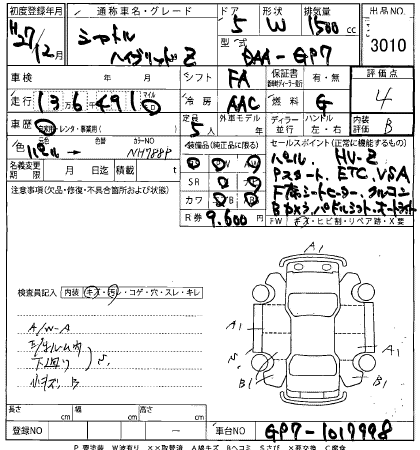 初度登録年月 通称車名・グレード ドア 形状 排気量 出品NO.
H27/12月 シャトル ハイブリッドZ 5 W 1500cc 3010
型式 DAA-GP7
車検 年 月 シフト FA 保証書 有・無 評価点
走行 136491 マイル 冷房 AAC 燃料 G 4
車歴 自家用・レンタ・事業用( ) 定員 5人 外車モデル 年 ディーラー 並行 ハンドル 左・右 内装評価 B
色 パール → 色替 カラーNO NH788P
名義変更期限 月 日迄 積載 t
装備品(純正品に限る)
SR
カワ
R券 9,600円
セールスポイント(正常に機能するもの)
パール、HV-Z
Pスタート、ETC、VSA
F席シートヒーター、クルコン
Bカメラ、パドルシフト、オートライト
FW キズ・ヒビ割・リペア跡・X要
注意事項(欠品・修復・不具合箇所および状態)
検査員記入 内装 キズ・汚レ・コゲ・穴・スレ・キレ
A/W-A
下廻り S
小キズ、B
A1
A1 A1
S
B1 B1
A1
長さ cm 幅 cm 高さ cm
登録NO ー 車台NO GP7-1017998
P 要塗装 W波有り XX取替済 A線キズ Bヘコミ Sさび X要交換 C腐食